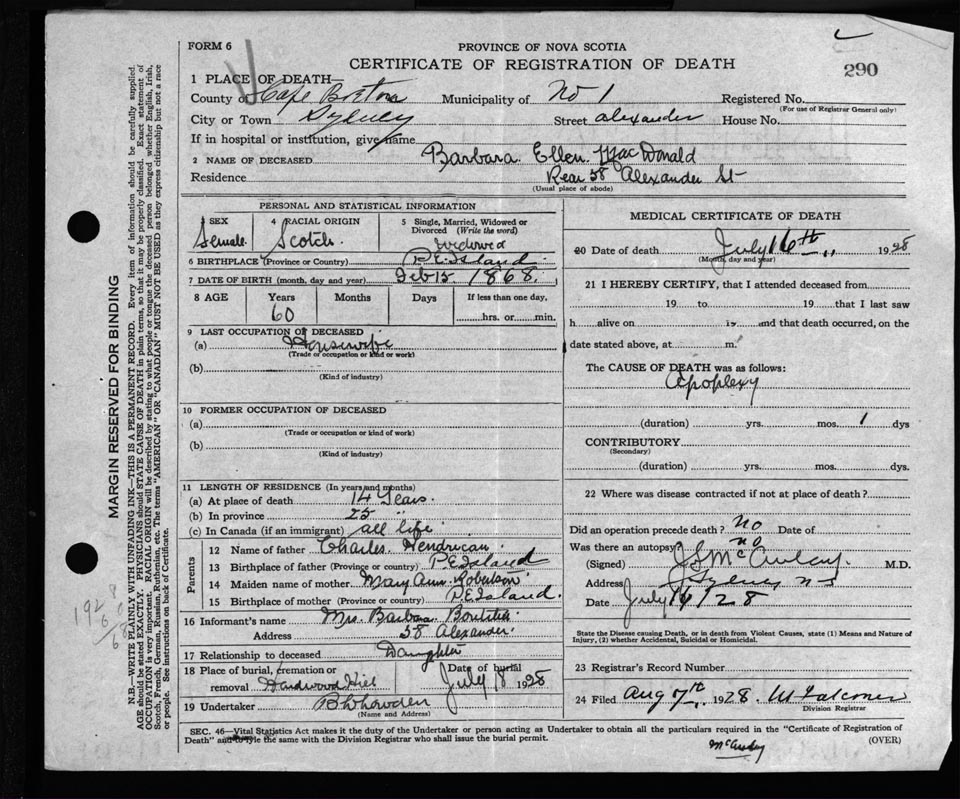 290
FORM 6
PROVINCE OF NOVA SCOTIA
CERTIFICATE OF REGISTRATION OF DEATH
1 PLACE OF DEATH—
County of Cape Breton Municipality of No 1 Registered No.
(For use of Registrar General only)
City or Town Sydney Street Alexander House No.
If in hospital or institution, give name
2 NAME OF DECEASED Barbara Ellen MacDonald
Residence Rear 58 Alexander St
(Usual place of abode)
PERSONAL AND STATISTICAL INFORMATION
SEX 4 RACIAL ORIGIN 5 Single, Married, Widowed or Divorced (Write the word)
Female Scotch Widowed
6 BIRTHPLACE (Province or Country) P.E. Island
7 DATE OF BIRTH (month, day and year) Feb 15 1868
8 AGE Years Months Days If less than one day,
60 hrs. or min.
9 LAST OCCUPATION OF DECEASED
(a) Housewife
(Trade or occupation or kind of work)
(b)
(Kind of industry)
10 FORMER OCCUPATION OF DECEASED
(a)
(Trade or occupation or kind of work)
(b)
(Kind of industry)
11 LENGTH OF RESIDENCE (In years and months)
(a) At place of death 14 Years
(b) In province 25 "
(c) In Canada (if an immigrant) all life
Parents
12 Name of father Charles
13 Birthplace of father (Province or country) P.E. Island
14 Maiden name of mother Mary Ann Robertson
15 Birthplace of mother (Province or country) P.E. Island
16 Informant's name Mrs. Barbara
Address 58 Alexander
17 Relationship to deceased Daughter
18 Place of burial, cremation or removal Hardwood Hill Date of burial July 18 1928
19 Undertaker
(Name and Address)
MEDICAL CERTIFICATE OF DEATH
20 Date of death July 16th 1928
(Month, day and year)
21 I HEREBY CERTIFY, that I attended deceased from
19 to 19 that I last saw
h alive on 19 and that death occurred, on the
date stated above, at m.
The CAUSE OF DEATH was as follows:
Apoplexy
(duration) yrs. mos. 1 dys
CONTRIBUTORY
(Secondary)
(duration) yrs. mos. dys.
22 Where was disease contracted if not at place of death?
Did an operation precede death? no Date of
Was there an autopsy no
(Signed) McAulay M.D.
Address Sydney NS
Date July /28
State the Disease causing Death, or in death from Violent Causes, state (1) Means and Nature of
Injury, (2) whether Accidental, Suicidal or Homicidal.
23 Registrar's Record Number
24 Filed Aug 7th 1928. Falconer
Division Registrar
SEC. 46—Vital Statistics Act makes it the duty of the Undertaker or person acting as Undertaker to obtain all the particulars required in the "Certificate of Registration of
Death" and to file the same with the Division Registrar who shall issue the burial permit. (OVER)
MARGIN RESERVED FOR BINDING
N.B.—WRITE PLAINLY WITH UNFADING INK—THIS IS A PERMANENT RECORD. Every item of information should be carefully supplied.
AGE should be stated EXACTLY. PHYSICIANS should STATE CAUSE OF DEATH in plain terms, so that it may be properly classified. Exact statement of
OCCUPATION is very important. RACIAL ORIGIN will be described by stating to what people or tongue the deceased person belonged whether English, Irish,
Scotch, French, German, Russian, Ruthenian, etc. The terms "AMERICAN" OR "CANADIAN" MUST NOT BE USED as they express citizenship but not a race
or people. See instructions on back of Certificate.